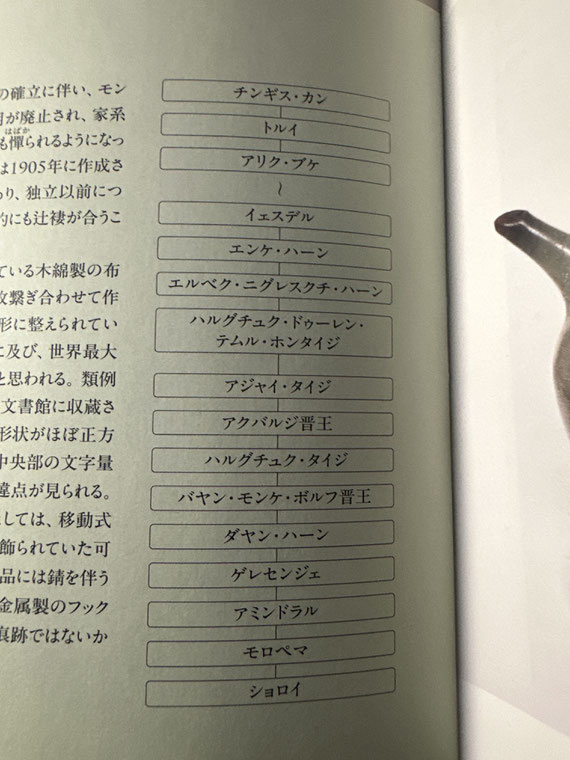 の確立に伴い、モン
が廃止され、家系
も憚られるようになっ
はばか
は1905年に作成さ
り、独立以前につ
的にも辻褄が合うこ
ている木綿製の布
枚繋ぎ合わせて作
形に整えられてい
に及び、世界最大
と思われる。類例
文書館に収蔵さ
形状がほぼ正方
中央部の文字量
違点が見られる。
しては、移動式
飾られていた可
品には錆を伴う
金属製のフック
痕跡ではないか
チンギス・カン
トルイ
アリク・ブケ
〜
イェスデル
エンケ・ハーン
エルベク・ニグレスクチ・ハーン
ハルグチュク・ドゥーレン・
テムル・ホンタイジ
アジャイ・タイジ
アクバルジ晋王
ハルグチュク・タイジ
バヤン・モンケ・ボルフ晋王
ダヤン・ハーン
ゲレセンジェ
アミンドラル
モロペマ
ショロイ